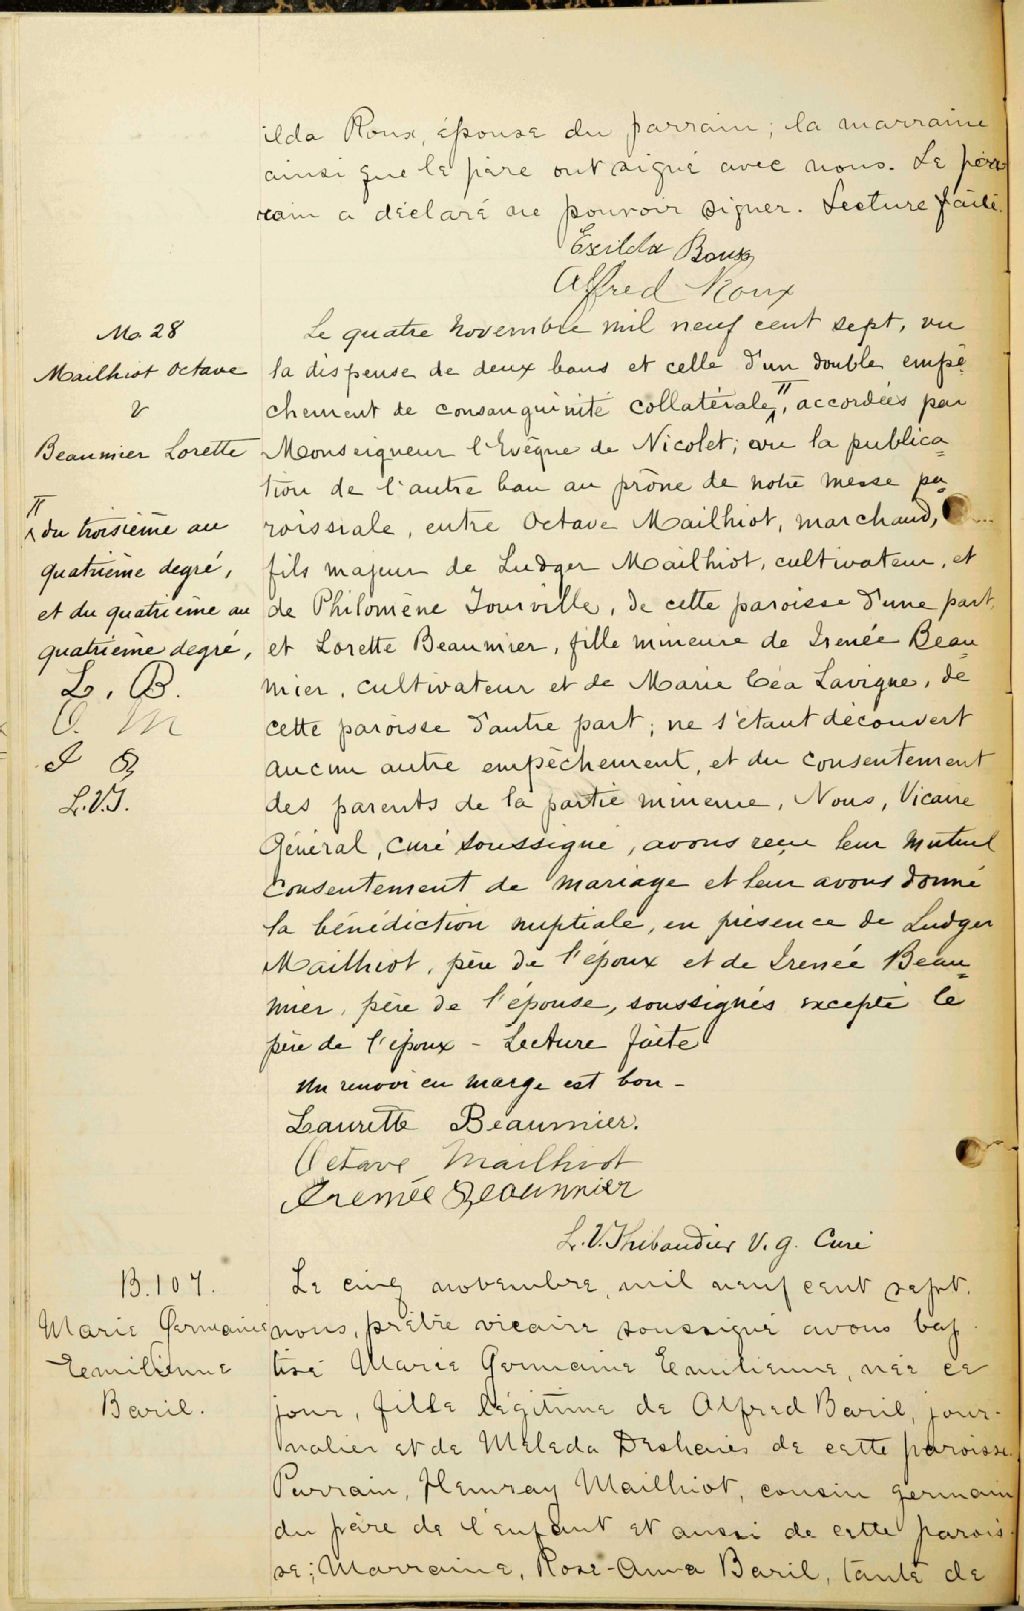 ilda Roux, épouse du parrain; la marraine
ainsi que le père ont signé avec nous. Le par-
rain a déclaré ne pouvoir signer. Lecture faite.
Exilda Roux
Alfred Roux
M. 28
Mailhiot Octave
&
Beaumier Lorette
Le quatre Novembre mil neuf cent sept, vu
la dispense de deux bans et celle d'un double empê=
chement de consanguinité collatérale, accordées par
Monseigneur l'Evêque de Nicolet; vu la publica=
tion de l'autre ban au prône de notre messe pa=
roissiale, entre Octave Mailhiot, marchand,
fils majeur de Ludger Mailhiot, cultivateur, et
de Philomène Tourville, de cette paroisse d'une part,
et Lorette Beaumier, fille mineure de Irenée Beau=
mier, cultivateur et de Marie Céa Lavigne, de
cette paroisse d'autre part; ne s'étant découvert
aucun autre empêchement, et du consentement
des parents de la partie mineure, Nous, Vicaire
Général, curé soussigné, avons reçu leur mutuel
consentement de mariage et leur avons donné
la bénédiction nuptiale, en présence de Ludger
Mailhiot, père de l'époux et de Irenée Beau=
mier, père de l'épouse, soussignés excepté le
père de l'époux - Lecture faite
Un renvoi en marge est bon -
du troisième au
quatrième degré,
et du quatrième au
quatrième degré,
L. B.
O. M
I B
L.V.T.
Laurette Beaumier.
Octave Mailhiot
Irenée Beaumier
L. V. Thibaudier V. g. Curé
B. 107.
Marie Germaine
Emilienne
Baril.
Le cinq novembre, mil neuf cent sept,
nous, prêtre vicaire soussigné avons bap-
tisé Marie Germaine Emilienne, née ce
jour, fille légitime de Alfred Baril, jour-
nalier et de Meleda Deshaies de cette paroisse.
Parrain, Hemray Mailhiot, cousin germain
du père de l'enfant et aussi de cette parois-
se; Marraine, Rose-Anna Baril, tante de